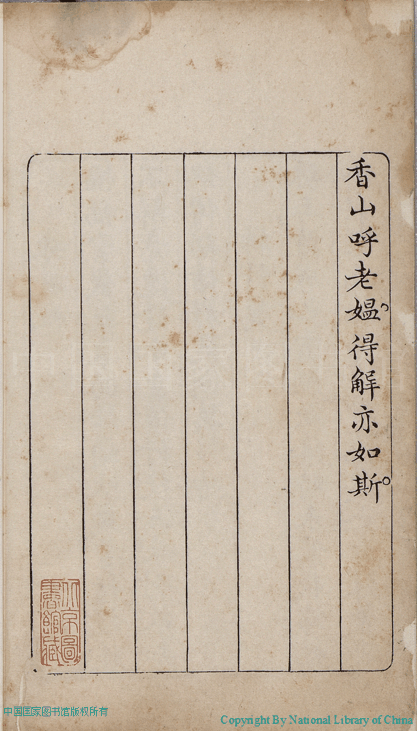 香山呼老媼、得解亦如斯。
北京圖書館藏
中国国家图书馆版权所有
Copyright By National Library of China